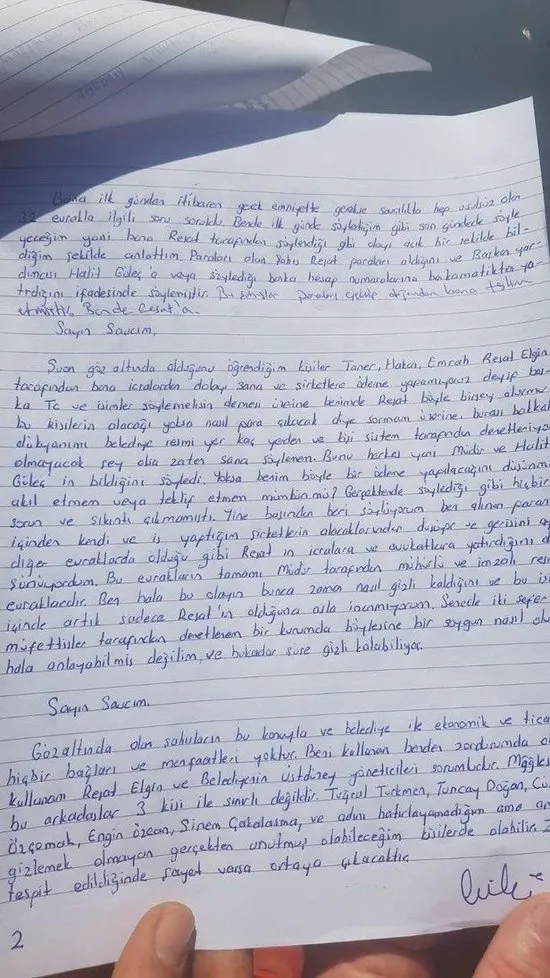 Bana ilk günden itibaren gerek emniyette gerekse savcılıkta hep usulsüz olan
32 evrakla ilgili soru soruldu. Bende ilk günde söylediğim gibi son günde de söyle
yeceğim yani bana Reşat tarafından söylendiği gibi olayı açık bir şekilde bil-
diğim şekilde anlattım Paraları alan Reşat paraları aldığını ve Başkan yar-
dımcısı Halit Güleç'e veya söylediği banka hesap numaralarına bankamatikten ya-
tırdığını ifadesinde söylemiştir. Bu paraları çekilip bana teslim
etmiştir. Bende Reşat'a.
Sayın Savcım,
Şuan göz altında olduğunu öğrendiğim kişiler Taner, Hakan, Emrah Reşat Elgin
tarafından bana icralardan dolayı sana ve şirketlere ödene yapamıyoruz deyip baş-
ka Tc ve isimler söylemelisin demesi üzerine benimde Reşat böyle birşey olurmu
bu kişilerin alacağı yoksa nasıl para çıkacak diye sormam üzerine. burası bakkal
dükyanımı belediye resmi yer kaç yerden ve kişi sistem tarafından denetleniyo
olmayacak şey olsa zaten sana söylemem. Bunu herkes yani Müdür ve Halit
Güleç in bildiğini söyledi. Yoksa benim böyle bir ödene yapılacağını düşünm
akıl etmem veya teklif etmem mümkün mü? Gerçektende söylediği gibi hiçbir
sorun ve sıkıntı çıkmamıştı. Yine başından beri söylüyorum ben alınan paran
içinden kendi ve iş yaptığım şirketlerin alacaklarından düşüp ve gerisini
diğer evraklarda olduğu gibi Reşat ın icralara ve avukatlara yatırdığını d
şünüyordum. Bu evrakların tamamı Müdür tarafından mühürlü ve imzalı res
evraklardır. Ben hala bu olayın bunca zaman nasıl gizli kaldığını ve bu işi
içinde artık sadece Reşat'ın olduğuna asla inanmıyorum. Senede iki sefer
müfettişler tarafından denetlenen bir kurumda böylesine bir soygun nasıl olu
hala anlayabilmiş değilim, ve bukadar süre gizli kalabiliyor.
Sayın Savcım.
Gözaltında olan şahısların bu konuyla ve belediye ile ekonomik ve tica
hiçbir bağları ve menfaatleri yoktur. Beni kullanan benden zordurumda o
kullanan Reşat Elgin ve Belediyenin üstdüzey yöneticileri sorumludur.
bu arkadaşlar 3 kişi ile sınırlı değildir. Tuğral Türkmen, Tuncay Doğan,
Özçomak, Engin Özcan, Sinem Çakalağma, ve adını hatırlayamadığım ama
gizlemek olmayan gerçekten unutmuş olabileceğim kişilerde olabilir.
tespit edildiğinde şayet varsa ortaya çıkacaktır.
2